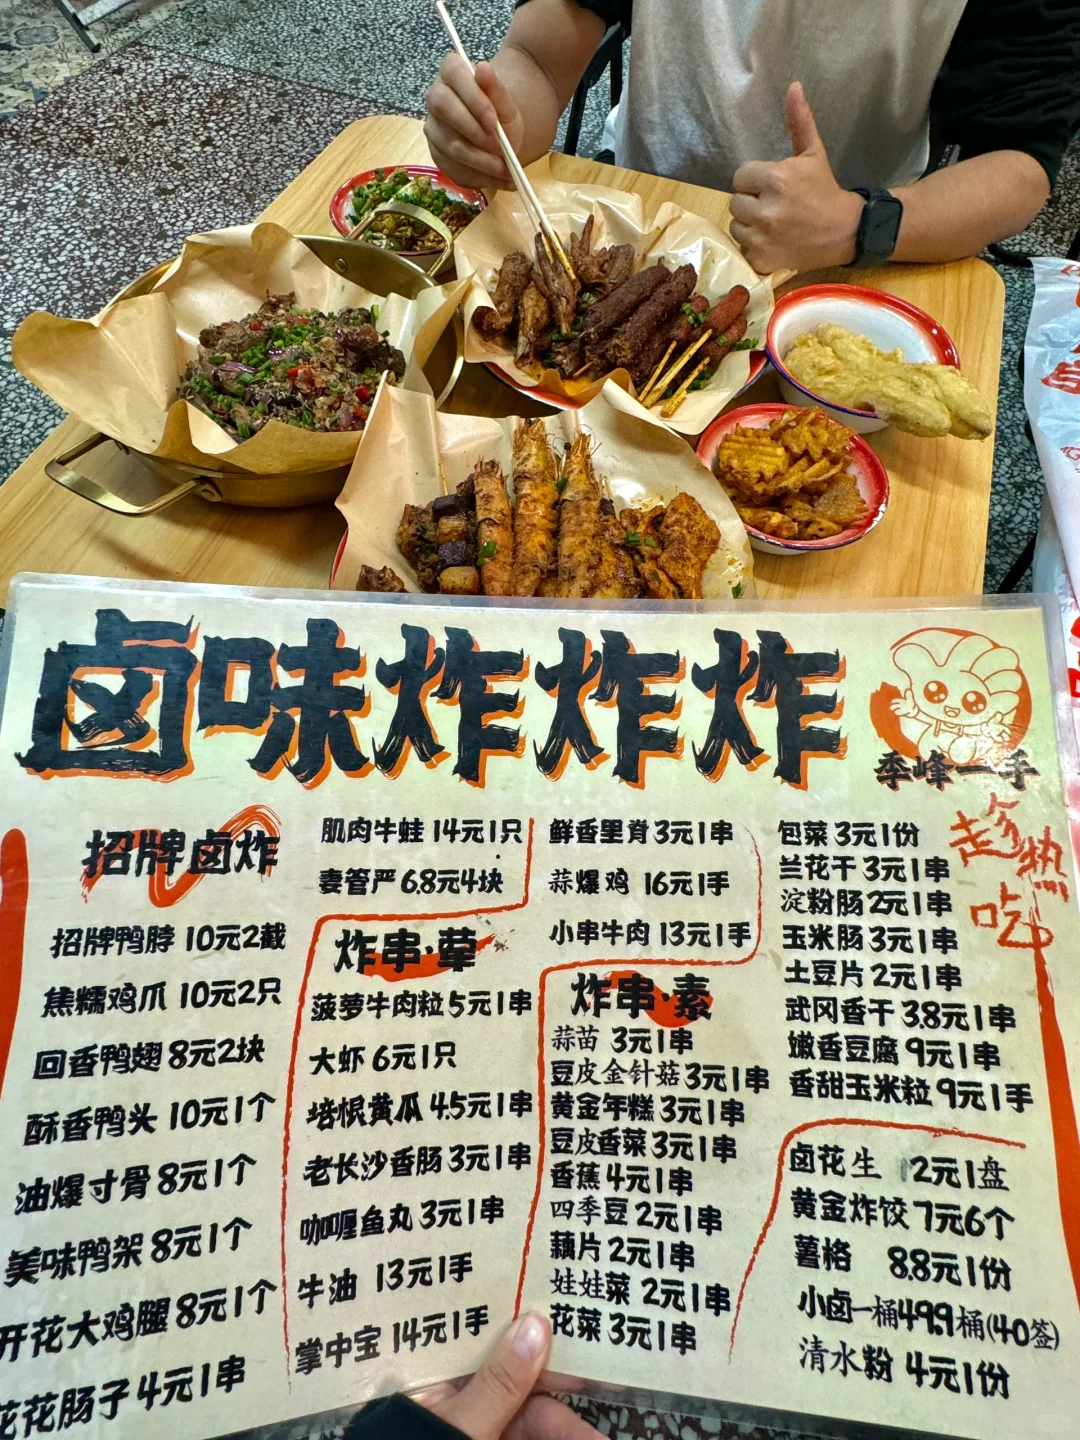 卤味炸炸炸
季峰一手
趁热吃
招牌卤炸
招牌鸭脖 10元2截
焦糯鸡爪 10元2只
回香鸭翅 8元2块
酥香鸭头 10元1个
油爆寸骨 8元1个
美味鸭架 8元1个
开花大鸡腿 8元1个
花花肠子 4元1串
肌肉牛蛙 14元1只
妻管严 6.8元4块
炸串·荤
菠萝牛肉粒 5元1串
大虾 6元1只
培根黄瓜 4.5元1串
老长沙香肠 3元1串
咖喱鱼丸 3元1串
牛油 13元1手
掌中宝 14元1手
鲜香里脊 3元1串
蒜爆鸡 16元1手
小串牛肉 13元1手
炸串·素
蒜苗 3元1串
豆皮金针菇 3元1串
黄金年糕 3元1串
豆皮香菜 3元1串
香蕉 4元1串
四季豆 2元1串
藕片 2元1串
娃娃菜 2元1串
花菜 3元1串
包菜 3元1份
兰花干 3元1串
淀粉肠 2元1串
玉米肠 3元1串
土豆片 2元1串
武冈香干 3.8元1串
嫩香豆腐 9元1串
香甜玉米粒 9元1手
卤花生 12元1盘
黄金炸饺 7元6个
薯格 8.8元1份
小卤一桶 49.9桶(40签)
清水粉 4元1份